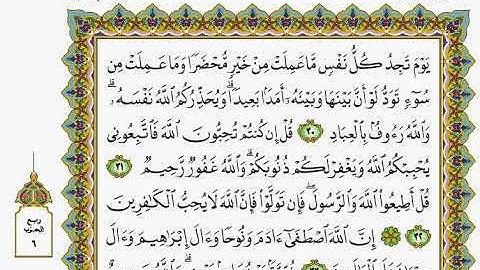 يَوْمَ تَجِدُ كُلُّ نَفْسٍ مَّا عَمِلَتْ مِنْ خَيْرٍ مُّحْضَرًا وَمَا عَمِلَتْ مِن
سُوٓءٍ تَوَدُّ لَوْ أَنَّ بَيْنَهَا وَبَيْنَهُۥٓ أَمَدًۢا بَعِيدًا ۗ وَيُحَذِّرُكُمُ ٱللَّهُ نَفْسَهُۥ ۗ
وَٱللَّهُ رَءُوفٌۢ بِٱلْعِبَادِ ٣٠ قُلْ إِن كُنتُمْ تُحِبُّونَ ٱللَّهَ فَٱتَّبِعُونِى
يُحْبِبْكُمُ ٱللَّهُ وَيَغْفِرْ لَكُمْ ذُنُوبَكُمْ ۗ وَٱللَّهُ غَفُورٌ رَّحِيمٌ ٣١
قُلْ أَطِيعُوا۟ ٱللَّهَ وَٱلرَّسُولَ ۖ فَإِن تَوَلَّوْا۟ فَإِنَّ ٱللَّهَ لَا يُحِبُّ ٱلْكَٰفِرِينَ
٣٢ ۞ إِنَّ ٱللَّهَ ٱصْطَفَىٰٓ ءَادَمَ وَنُوحًا وَءَالَ إِبْرَٰهِيمَ وَءَالَ
ربع
الحزب
٦